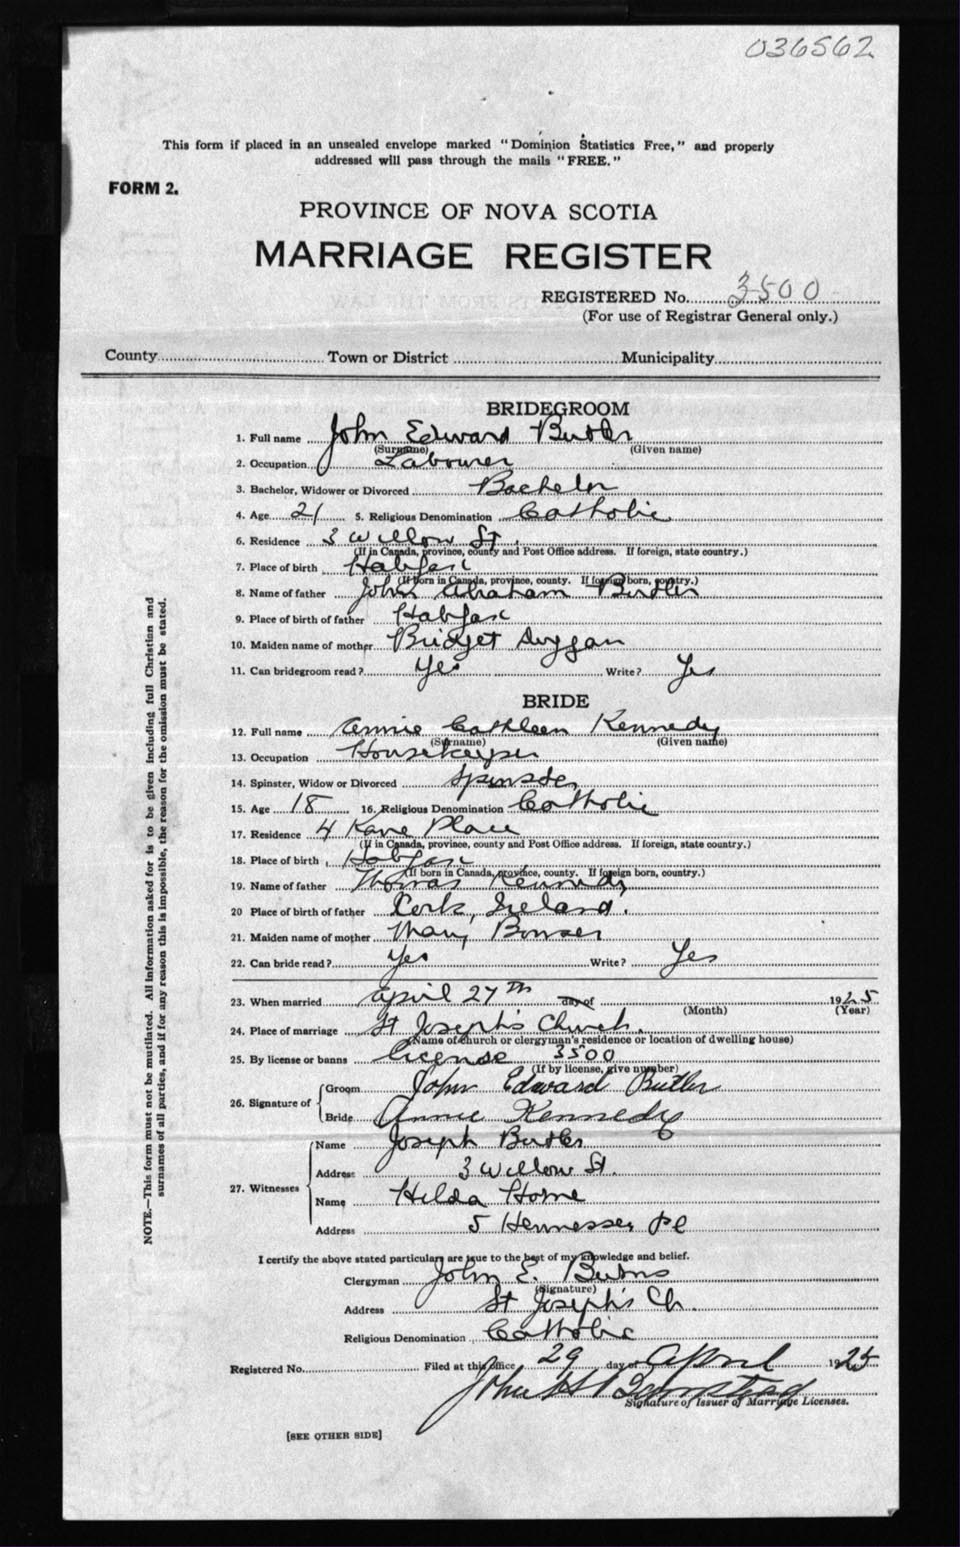 036562
This form if placed in an unsealed envelope marked "Dominion Statistics Free," and properly
addressed will pass through the mails "FREE."
FORM 2.
PROVINCE OF NOVA SCOTIA
MARRIAGE REGISTER
REGISTERED No. 3500
(For use of Registrar General only.)
County Town or District Municipality
BRIDEGROOM
1. Full name John Edward Butler
(Surname) (Given name)
2. Occupation Labourer
3. Bachelor, Widower or Divorced Bachelor
4. Age 21 5. Religious Denomination Catholic
6. Residence 3 Willow St.
(If in Canada, province, county and Post Office address. If foreign, state country.)
7. Place of birth Halifax
(If born in Canada, province, county. If foreign born, country.)
8. Name of father John Abraham Butler
9. Place of birth of father Halifax
10. Maiden name of mother Bridget Duggan
11. Can bridegroom read? Yes Write? Yes
BRIDE
12. Full name Annie Cathleen Kennedy
(Surname) (Given name)
13. Occupation Housekeeper
14. Spinster, Widow or Divorced Spinster
15. Age 18 16. Religious Denomination Catholic
17. Residence 4 Kane Place
(If in Canada, province, county and Post Office address. If foreign, state country.)
18. Place of birth Halifax
(If born in Canada, province, county. If foreign born, country.)
19. Name of father Thomas Kennedy
20 Place of birth of father Cork, Ireland.
21. Maiden name of mother Mary Bowser
22. Can bride read? Yes Write? Yes
23. When married April 27th day of 1925
(Month) (Year)
24. Place of marriage St Joseph's Church.
(Name of church or clergyman's residence or location of dwelling house)
25. By license or banns license 3500
(If by license, give number)
26. Signature of Groom John Edward Butler
Bride Annie Kennedy
27. Witnesses Name Joseph Butler
Address 3 Willow St.
Name Hilda Horne
Address 5 Hennessey Pl
I certify the above stated particulars are true to the best of my knowledge and belief.
Clergyman John E. Burns
(Signature)
Address St Joseph's Ch.
Religious Denomination Catholic
Registered No. Filed at this office 29 day of April 1925
John H
Signature of Issuer of Marriage Licenses.
[SEE OTHER SIDE]
NOTE.—This form must not be mutilated. All information asked for is to be given including full Christian and
surnames of all parties, and if for any reason this is impossible, the reason for the omission must be stated.